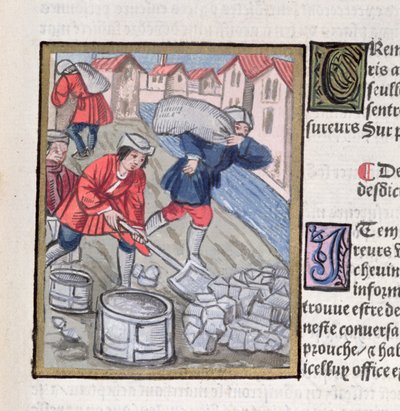 Rem
ris a
seulle
sentre
sureurs Sur p
¶ Des
desdic
ITem
reurs
chevin
inform
trouve estre de
neste conversa
prouche/ & hab
icelluy office e